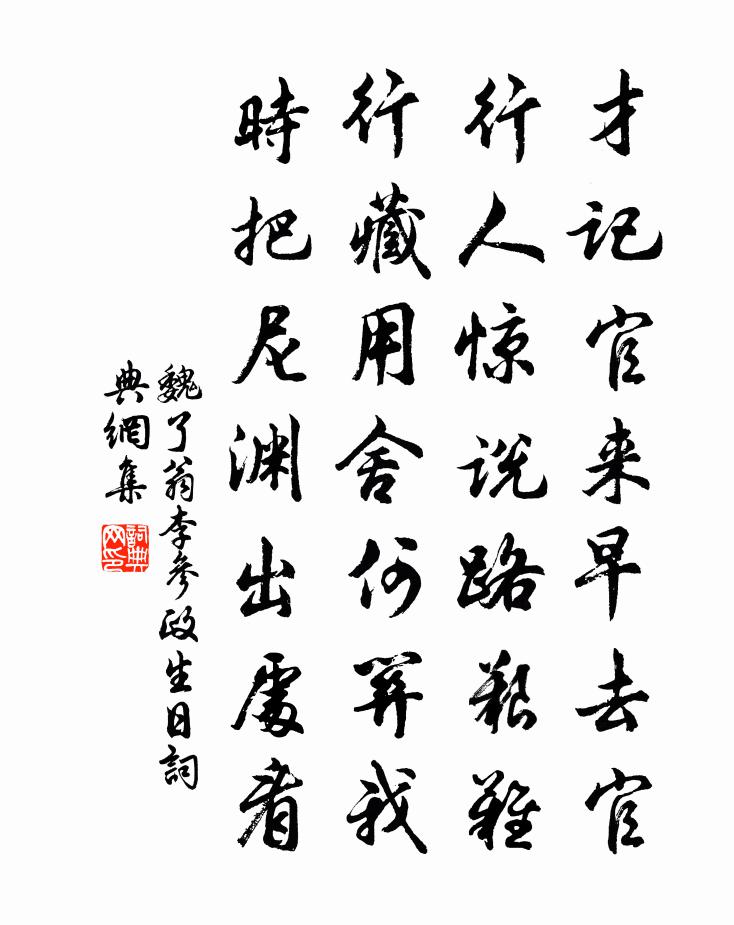 才记官来早去官
行人惊说路艰難
行藏用舍何關我
時把尼渊出處看
魏了翁李參政生日詞
典網集
詞典
网印